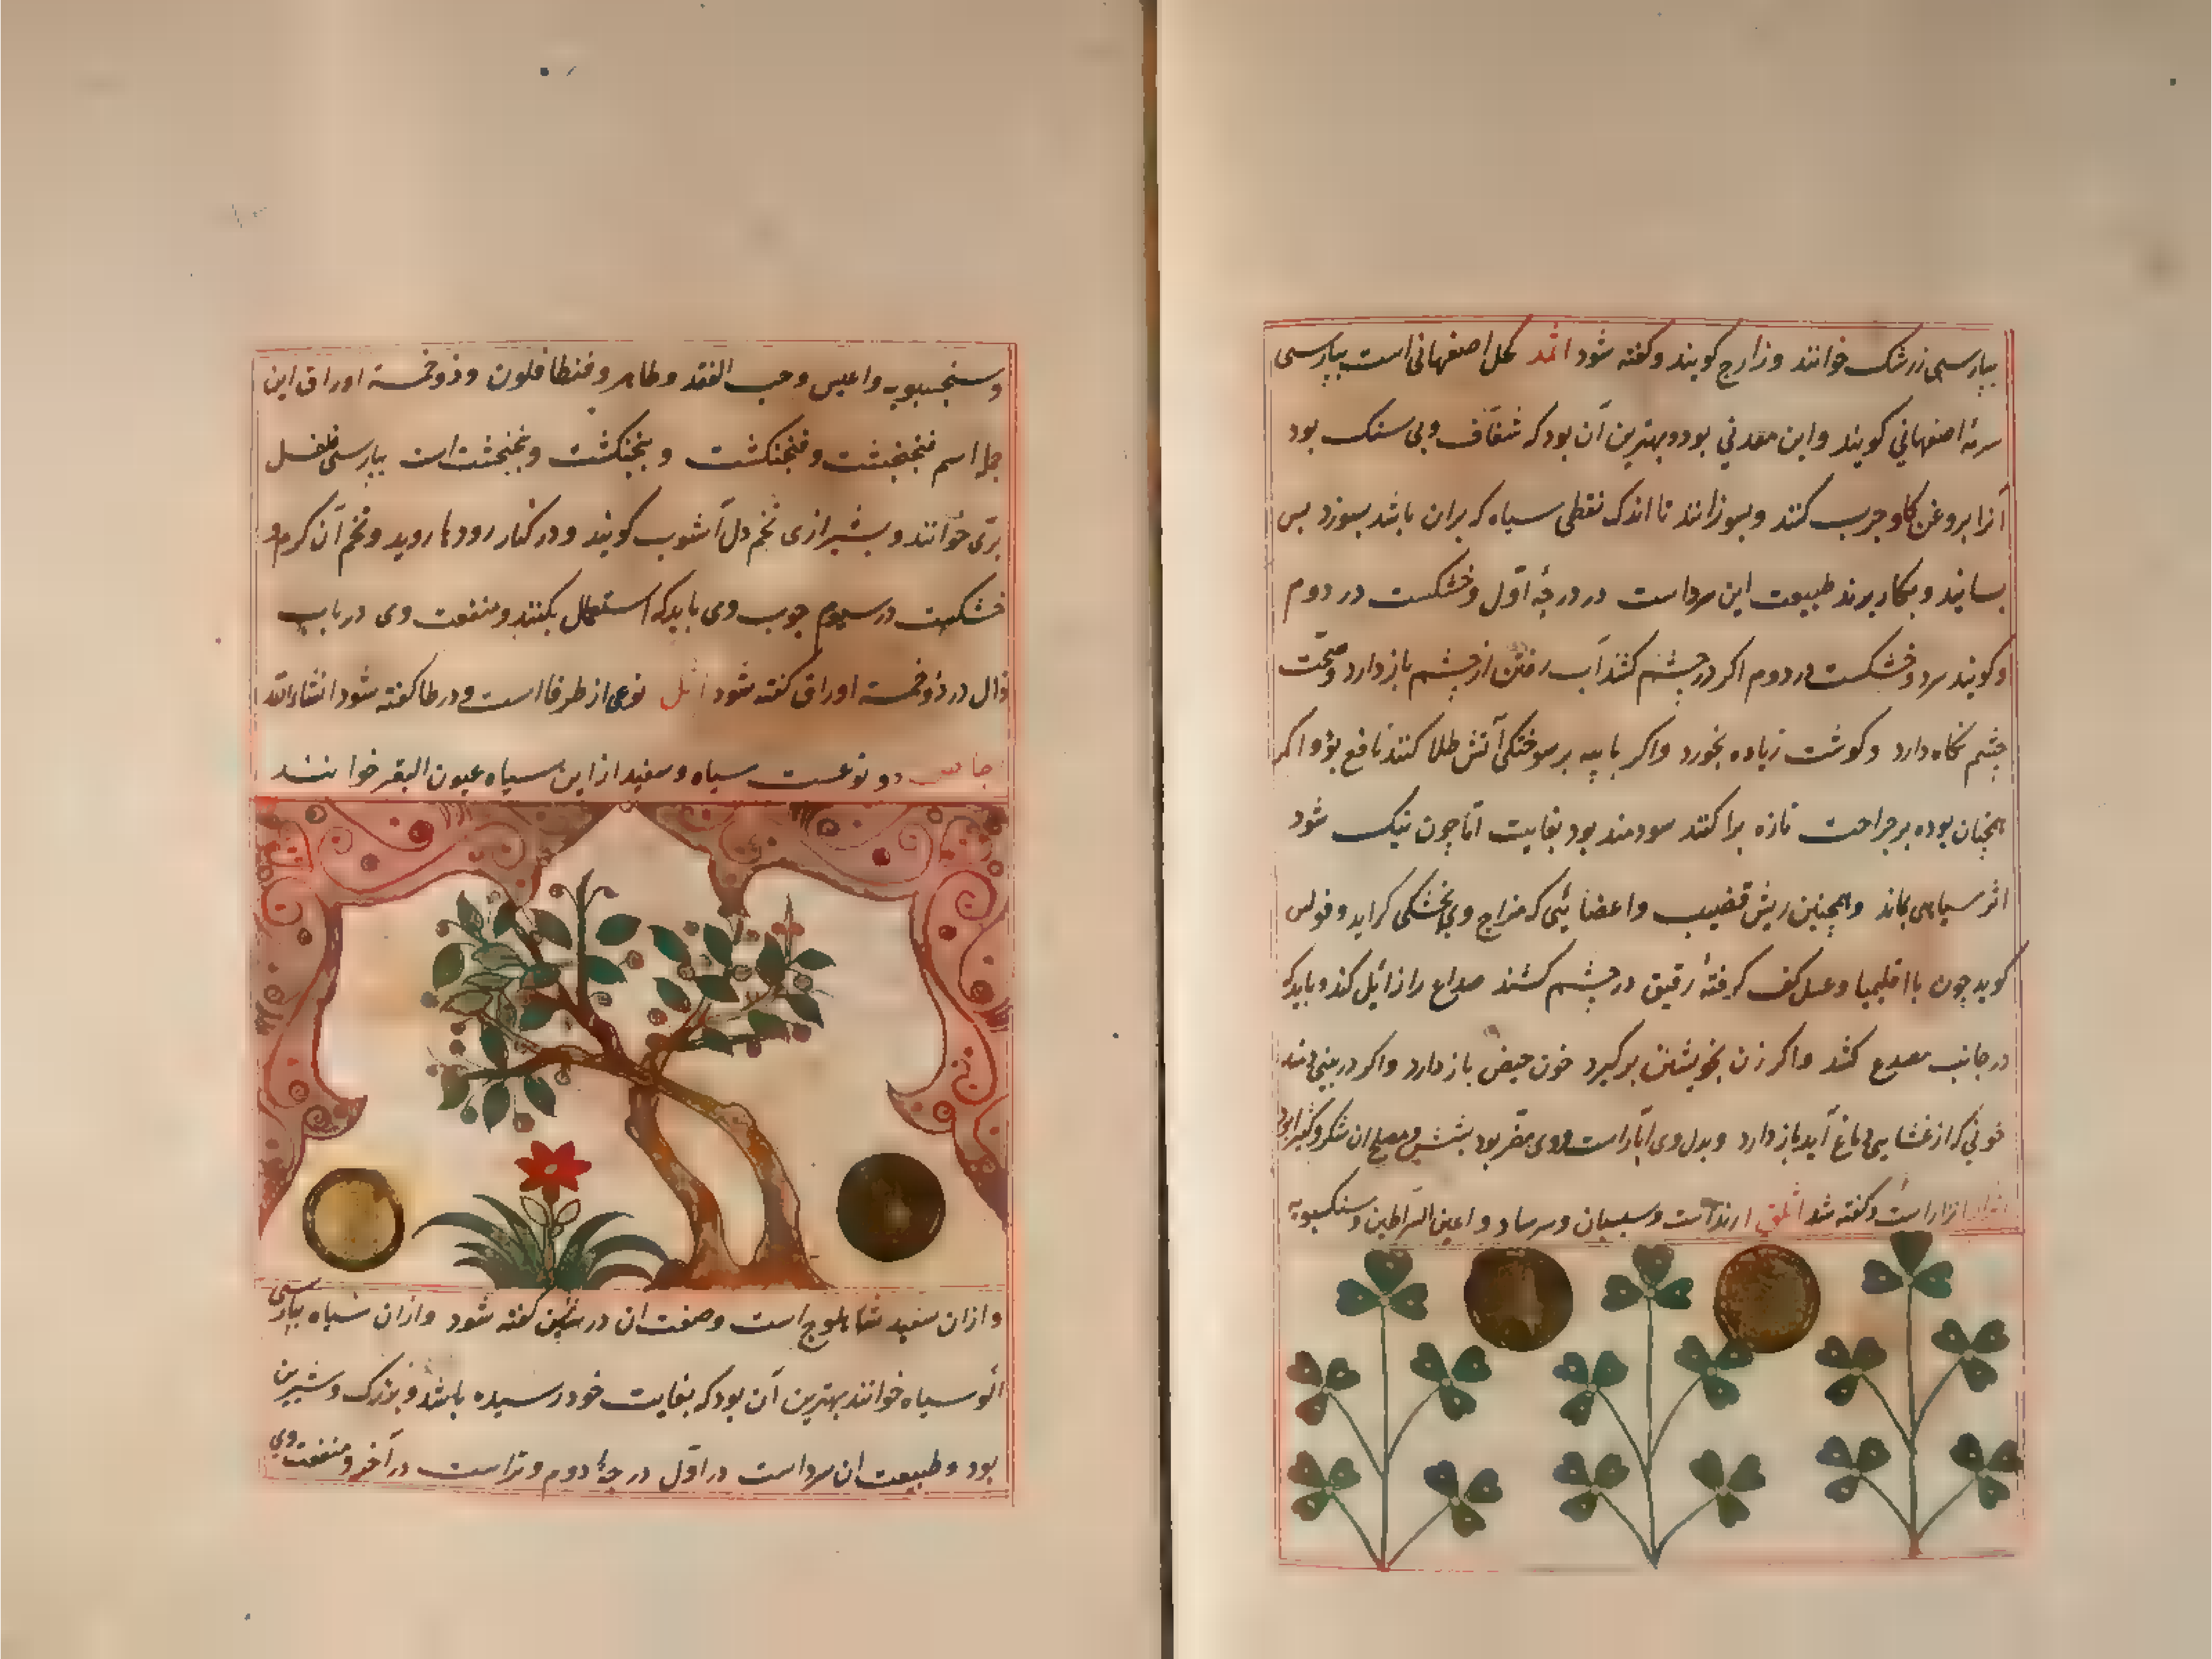 بپارسی زرشک خوانند و زارج کویند و کفته شود اثمد کحل اصفهانی است بپارسی
سرمه اصفهانی کویند واین معدنی بود و بهترین آن بود که شفاف و بی سنک بود
آنرا بروغن کاو چرب کنند و بسوزانند تا اندک نقطی سیاه که بران باشد بسوزد بس
بسایند و بکار برند طبیعت این سرداست در درجهٔ اوّل و خشکست در دوم
و کویند سرد و خشکست در دوم اکر در چشم کشند آب رفتن از چشم باز دارد و صحّت
چشم نکاه دارد و کوشت زیاده بخورد واکر با پیه بر سوختکی آتش طلا کنند نافع بود و اکر
همچنان بوده بر جراحت تازه پراکنند سودمند بود بغایت امّا چون نیک شود
اثر سیاهی بماند و همچنین ریش قضیب و اعضائیی که مزاج وی بخشکی کراید و فولس
کوید چون با اقلیمیا و عسل کف کرفتهٔ رقیق در چشم کشند صداع را زائیل کند و باید که
در جانب مصدع کشد واکر زن بخویشتن برکیرد خون حیض باز دارد واکر در بینی دمند
خونی که از غشایی دماغ آید باز دارد و بدل وی آبار است و وی مضر بود بشش و مصلح ان شکر و کثیرا بود
انرار است و کفته شد اثلق ارند است و سیسبان و سرساد و اعین السراطین و سنکسبویه
و سنجسبویه واعیس وحب الفقد وطاهر و فنطافلون و ذو خمسة اوراق این
جمله اسم فنجنخشت و فنجنکشت و بنجنکشت و بنجنخشت است بپارسی فلفل
برّی خوانند و بشیرازی تخم دل آشوب کویند و در کنار رودها روید و تخم آن کرم و
خشکست در سیوم چوب وی باید که استعمال بکنند و منفعت وی در باب
ذال در ذو خمسة اوراق کفته شود اثل نوعی از طرفا است و در طا کفته شود انشاءالله
اجاص دو نوعست سیاه و سفید از این سیاه عیون البقر خوانند
و ازان سفید شاهلوج است و صفت ان در شین کفته شود و ازان سیاه بپارسی
آلو سیاه خوانند بهترین آن بود که بغایت خود رسیده باشد و بزرک و شیرین
بود و طبیعت ان سرداست در اوّل درجهٔ دوم و تراست در آخر و منفعت وی